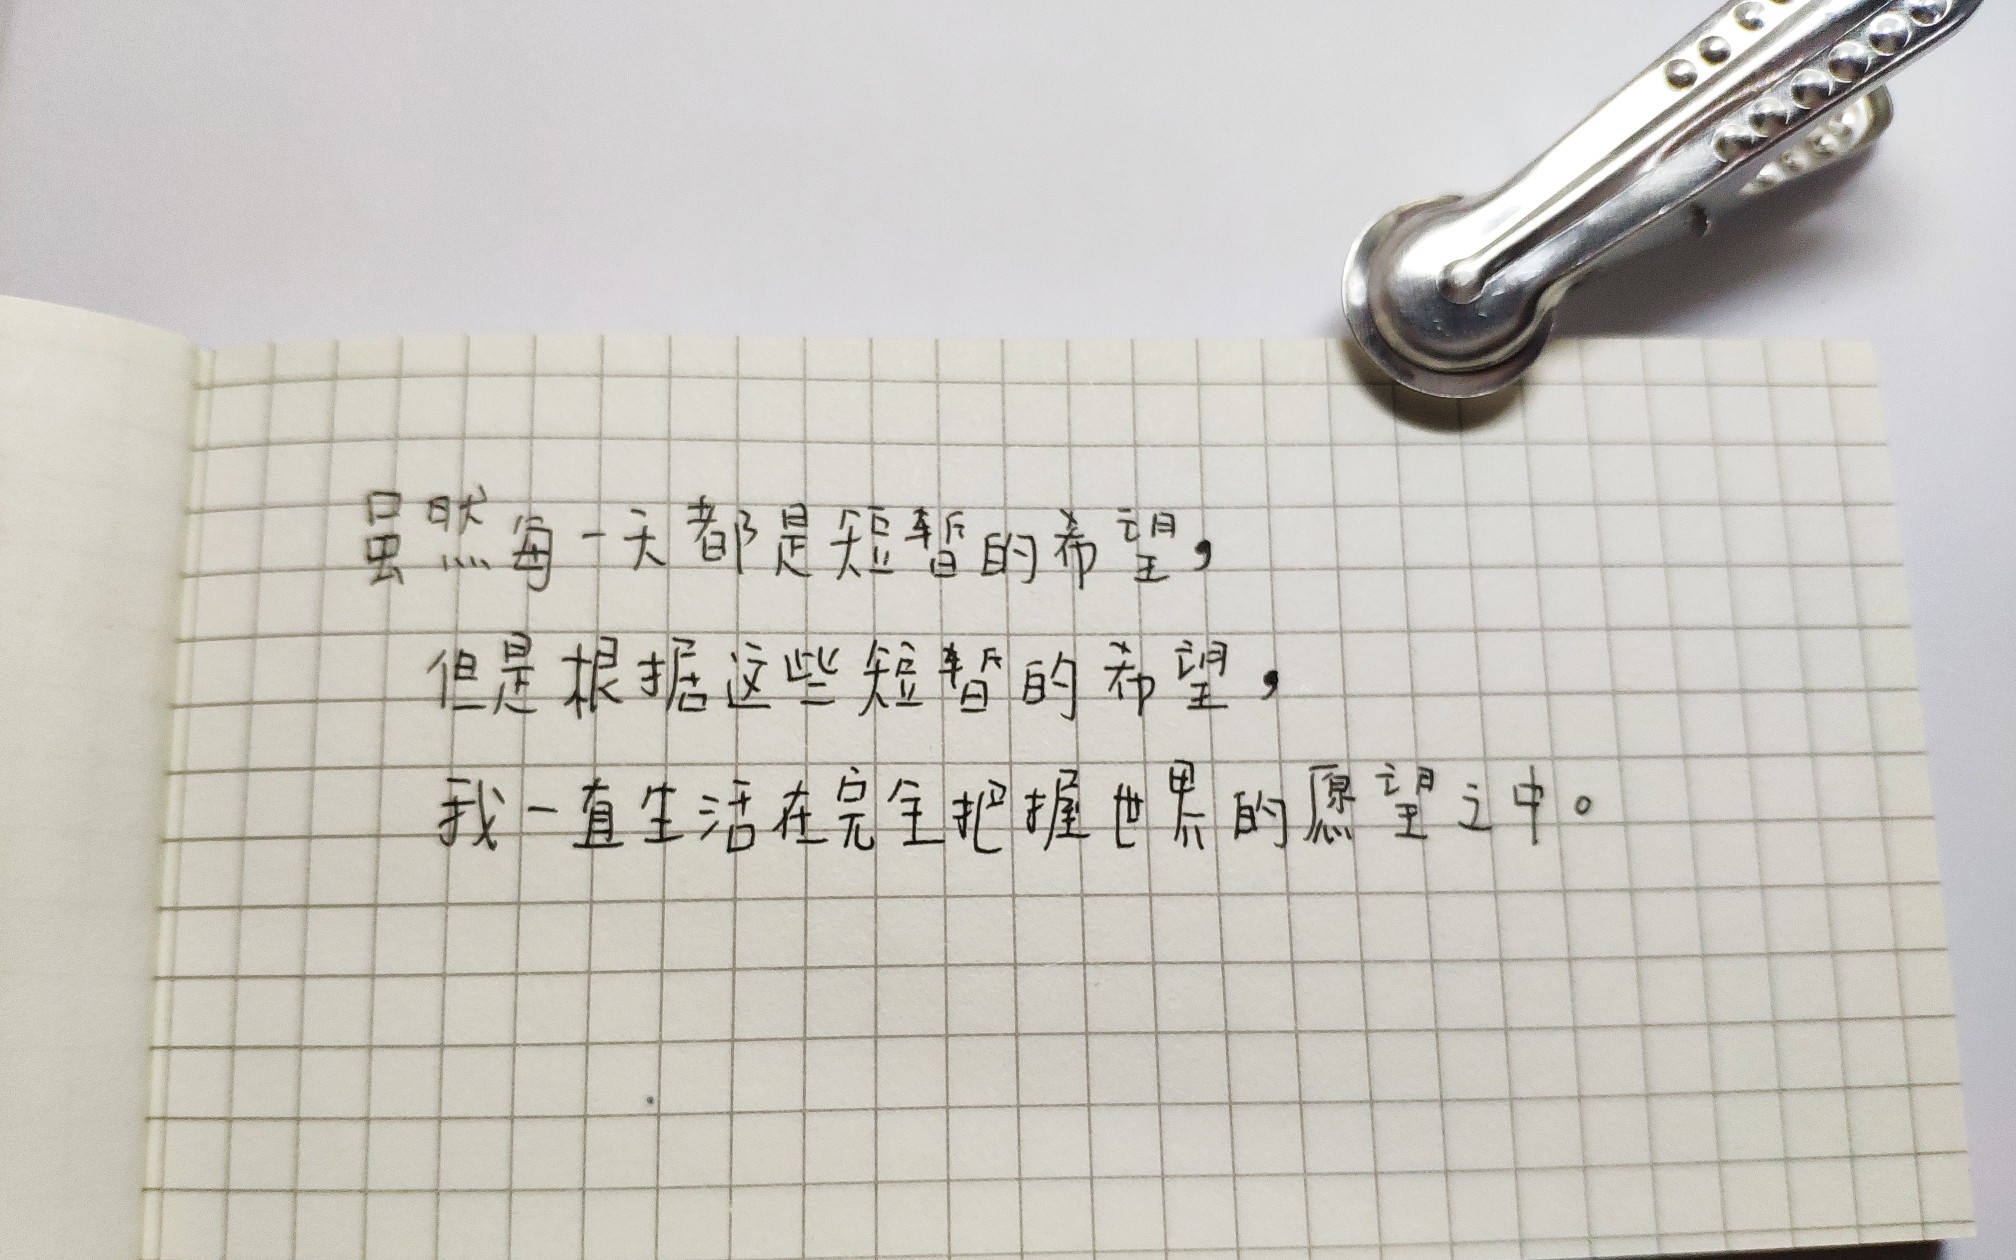 虽然每一天都是短暂的希望，
但是根据这些短暂的希望，
我一直生活在完全把握世界的愿望之中。